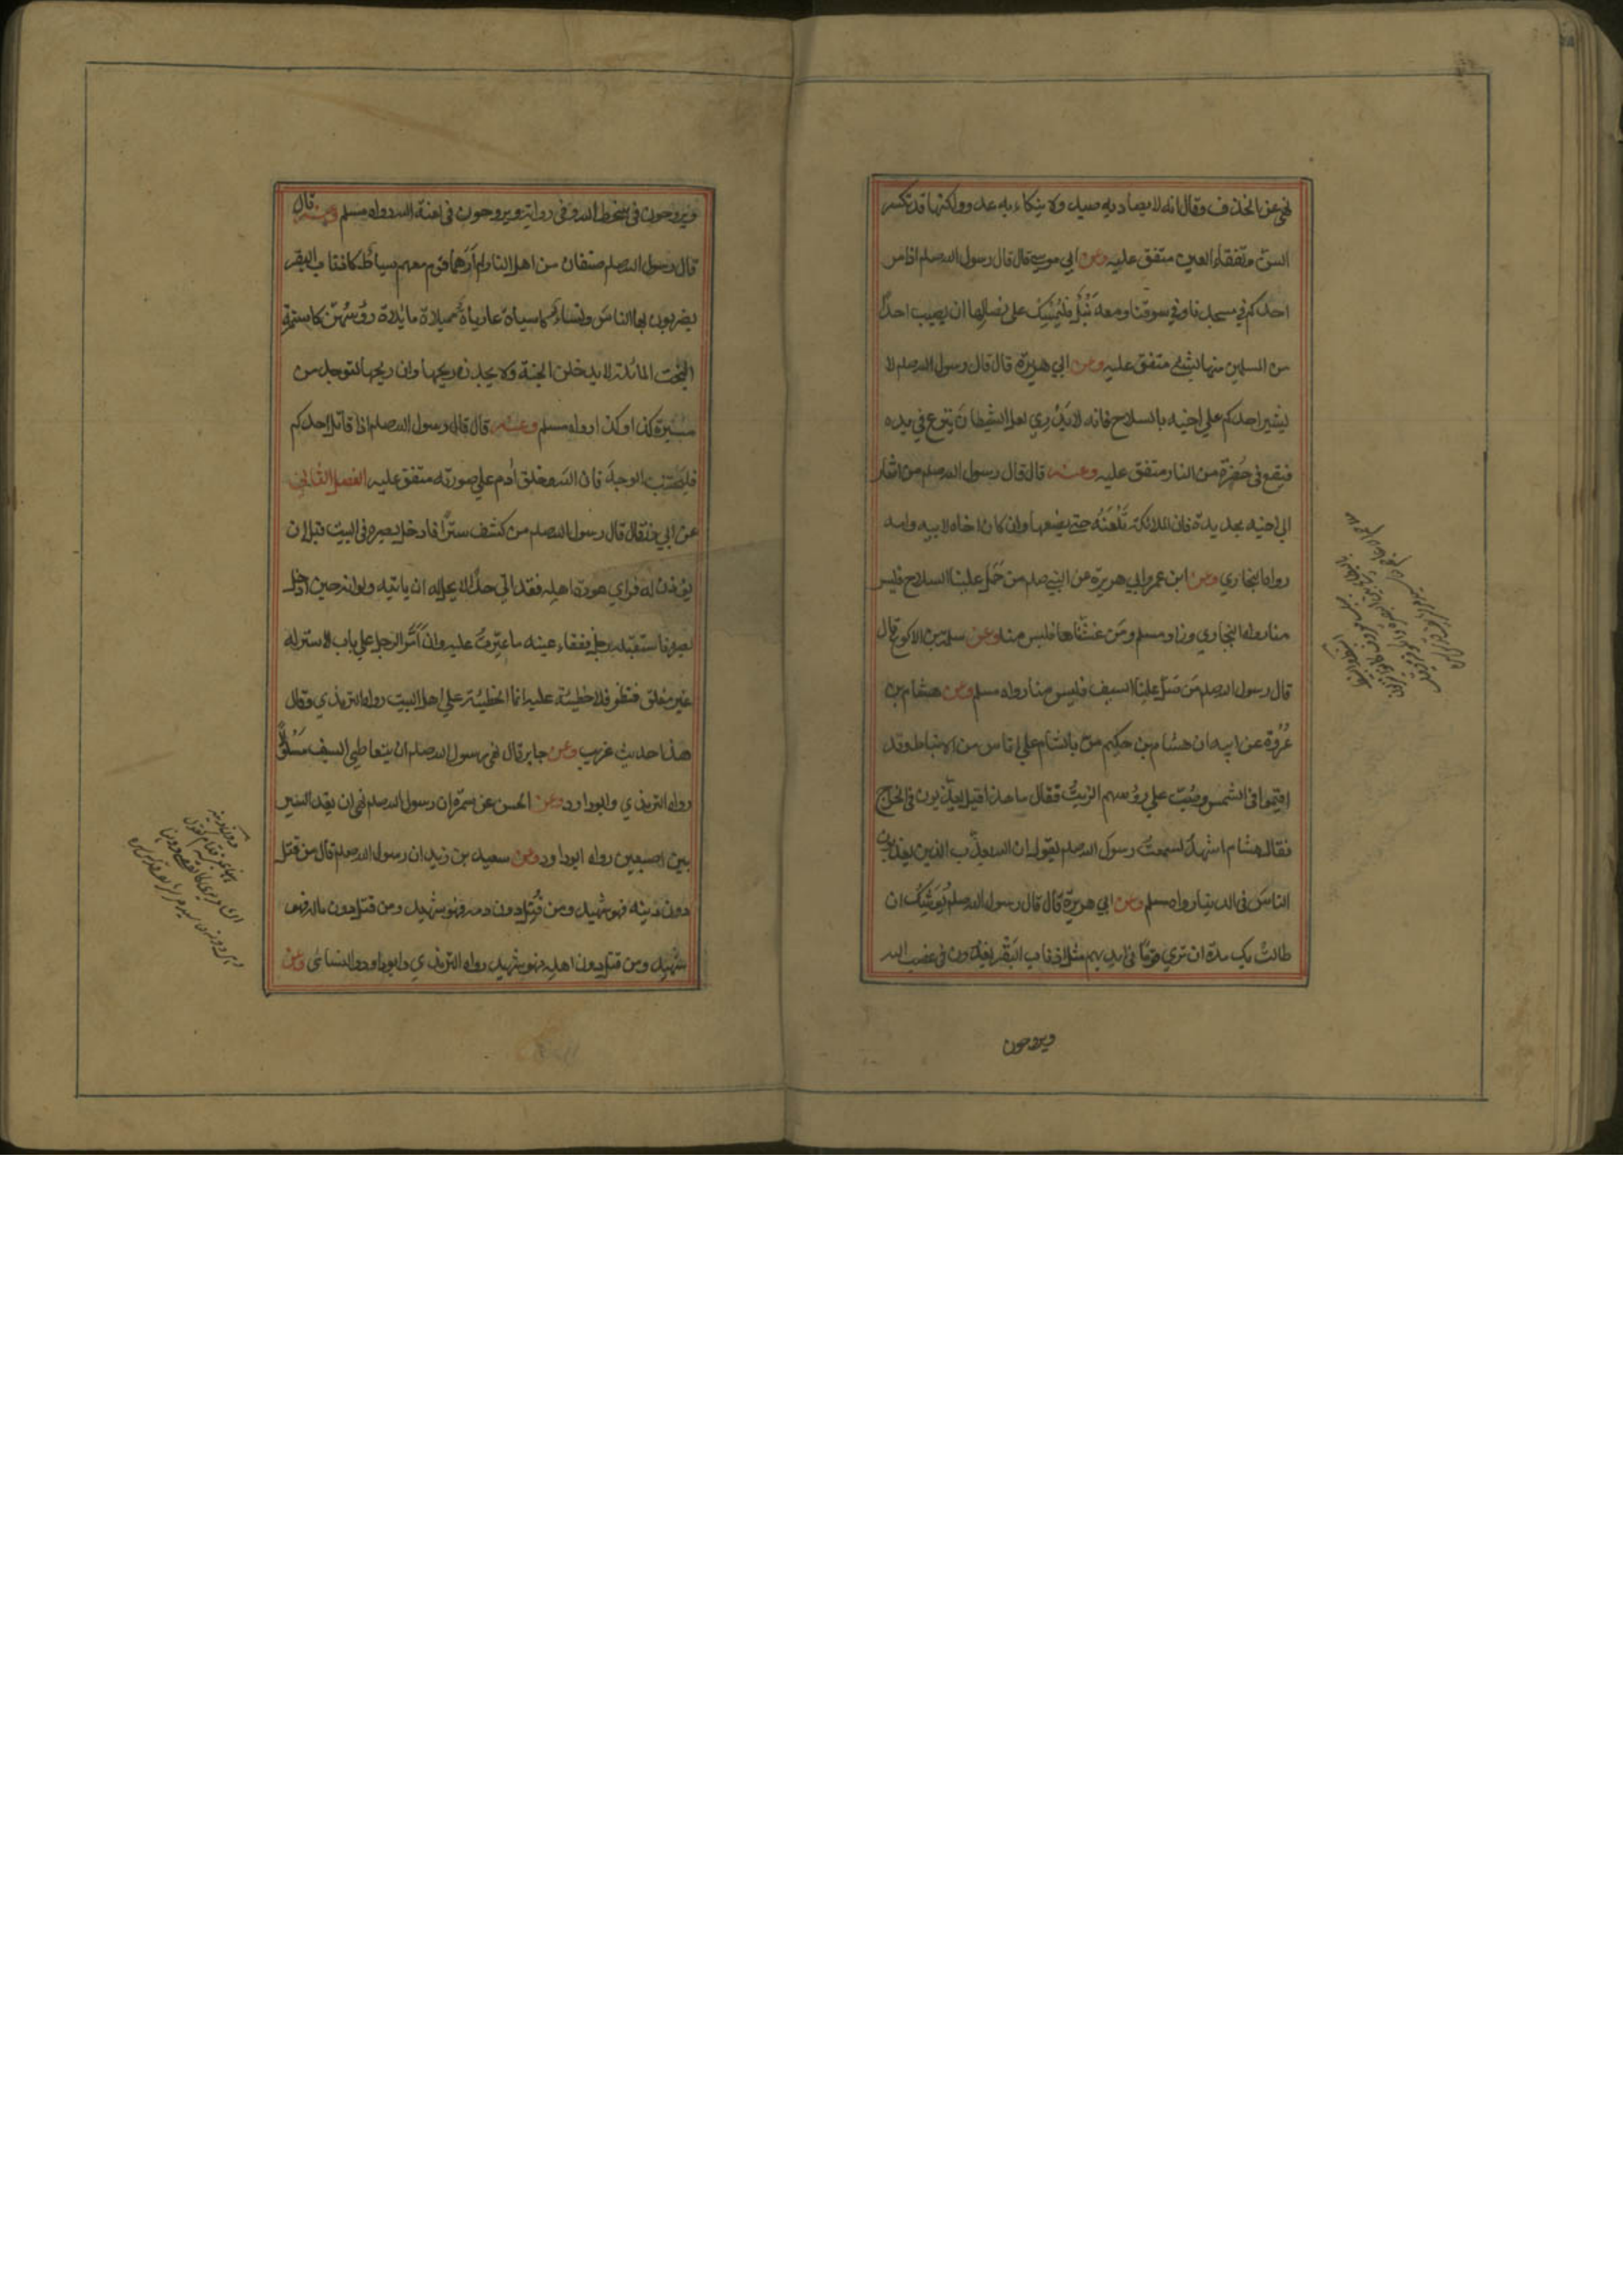 نهي عن الخذف وقال انه لا يصاد به صيد ولا ينكاء به عدو ولكنها قد تكسر
السن وتفقأ العين متفق عليه وعن ابي موسي قال قال رسول الله صلم اذا مر
احدكم في مسجدنا وفي سوقنا ومعه نَبْلٌ فليُمْسِكْ علي نصالها ان يصيب احدًا
من المسلمين منها بشي متفق عليه وعن ابي هريرة قال قال رسول الله صلم لا
يشير احدكم علي اخيه بالسلاح فانه لا يَدْرِي لعل الشيطان ينزع في يده
فيقع في حُفرة من النار متفق عليه وعنه قال قال رسول الله صلم من اشار
الي اخيه بحديدة فان الملائكة تَلْعَنُه حتي يضعها وان كان اخاه لابيه وامه
رواه البخاري وعن ابن عمر وابي هريرة عن النبي صلم من حَمَلَ علينا السلاح فليس
منا رواه البخاري وزاد مسلم ومن غشّنا فليس منا وعن سلمة بن الاكوع قال
قال رسول الله صلم مَن سَلّ علينا السيف فليس منا رواه مسلم وعن هشام بن
عُرْوة عن ابيه ان هشام بن حكيم مرّ بالشام علي اناس من الانباط وقد
اقيموا في الشمس وصُبّ علي رؤسهم الزيتُ فقال ما هذا قيل يعذّبون في الخراج
فقال هشام اشهدُ لسمعتُ رسولَ الله صلم يقول ان الله يعذّب الذين يعذبون
الناسَ في الدنيا رواه مسلم وعن ابي هريرة قال قال رسول الله صلم يُوشِكُ ان
طالت بك مدة ان تري قومًا في ايديهم مثل اذناب البَقَر يغدون في غضب الله
ويروحون
ويروحون في سخط الله وفي رواية ويروحون في لعنة الله رواه مسلم وعنه قال
قال رسول الله صلم صنفان من اهل النار لم اَرَهما قوم معهم سياطٌ كاذناب البقر
يضربون بها الناسَ ونساءٌ كاسياة عارياة مميلاة مائلاة رؤسهنّ كاسنمة
البُخت المائلة لا يدخلن الجنة ولا يجدن ريحها وان ريحها لتوجد من
مسيرة كذا وكذا رواه مسلم وعنه قال قال رسول الله صلم اذا قاتل احدكم
فليجتنب الوجهَ فان الله خلق اٰدم علي صورته متفق عليه الفصل الثاني
عن ابي ذر قال قال رسول الله صلم من كشف سترًا فادخل بصره في البيت قبل ان
يؤذن له فراي عورة اهله فقد اتي حدًا لا يحل له ان ياتيه ولو انه حين ادخل
بصره فاستقبله رجل ففقاء عينه ما عيّرتُ عليه وان مَرّ الرجل علي باب لا ستر له
غير مغلق فنظر فلا خطيئة عليه انما الخطيئة علي اهل البيت رواه الترمذي وقال
هذا حديث غريب وعن جابر قال نهي رسول الله صلم ان يتعاطي السيف مَسلولًا
رواه الترمذي وابو داود وعن الحسن عن سمرة ان رسول الله صلم نهي ان يقد السير
بين اصبعين رواه ابو داود وعن سعيد بن زيد ان رسول الله صلم قال من قتل
دون دينه فهو شهيد ومن قُتِل دون دمه فهو شهيد ومن قتل دون ماله فهو
شهيد ومن قتل دون اهله فهو شهيد رواه الترمذي وابو داود والنسائي وعن